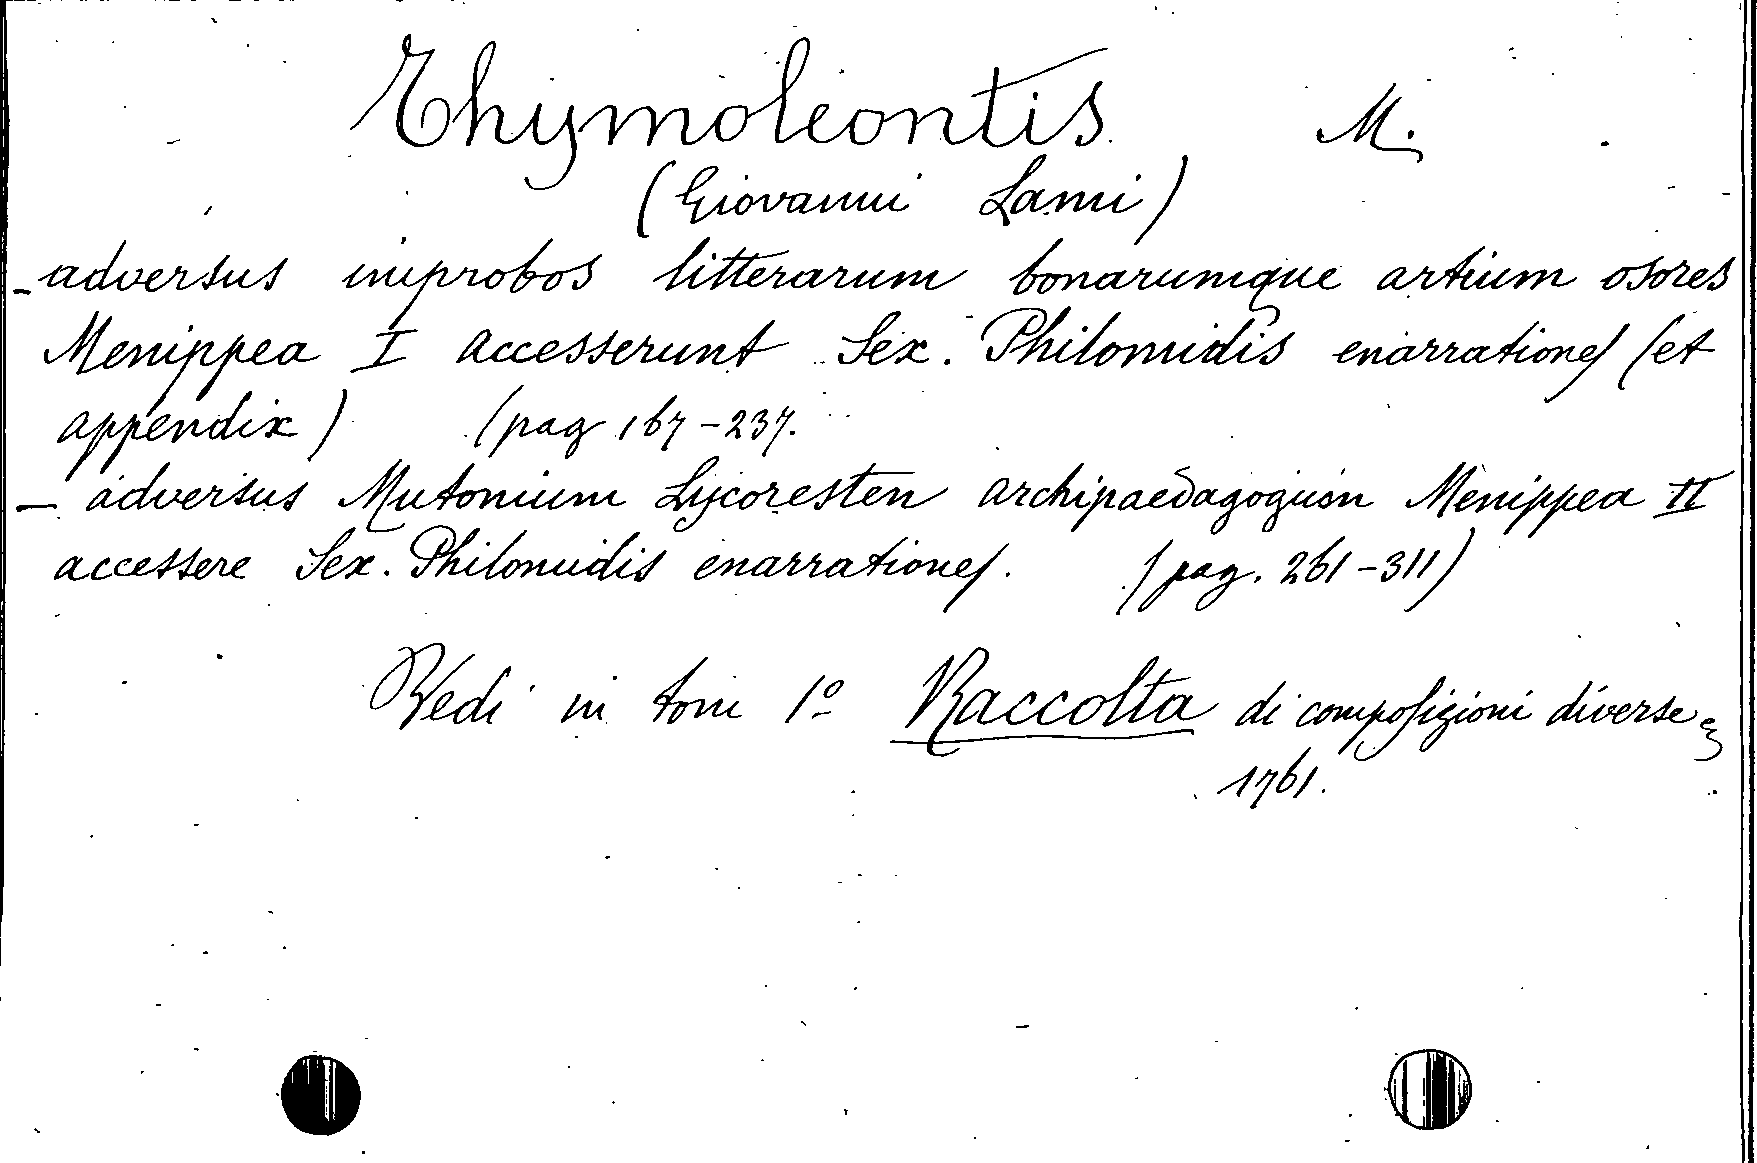 Thymoleontis M.
(Giovanni Lami)
- adversus improbos litterarum bonarumque artium osores
Menippea I accesserunt Sex. Philomidis enarrationes (et
appendix) (pag 167-237.
- adversus Mutonium Lycoresten archipaedagogum Menippea II
accessere Sex. Philomidis enarrationes. (pag. 261-311)
Vedi in tom 1º Raccolta di composizioni diverse
1761.